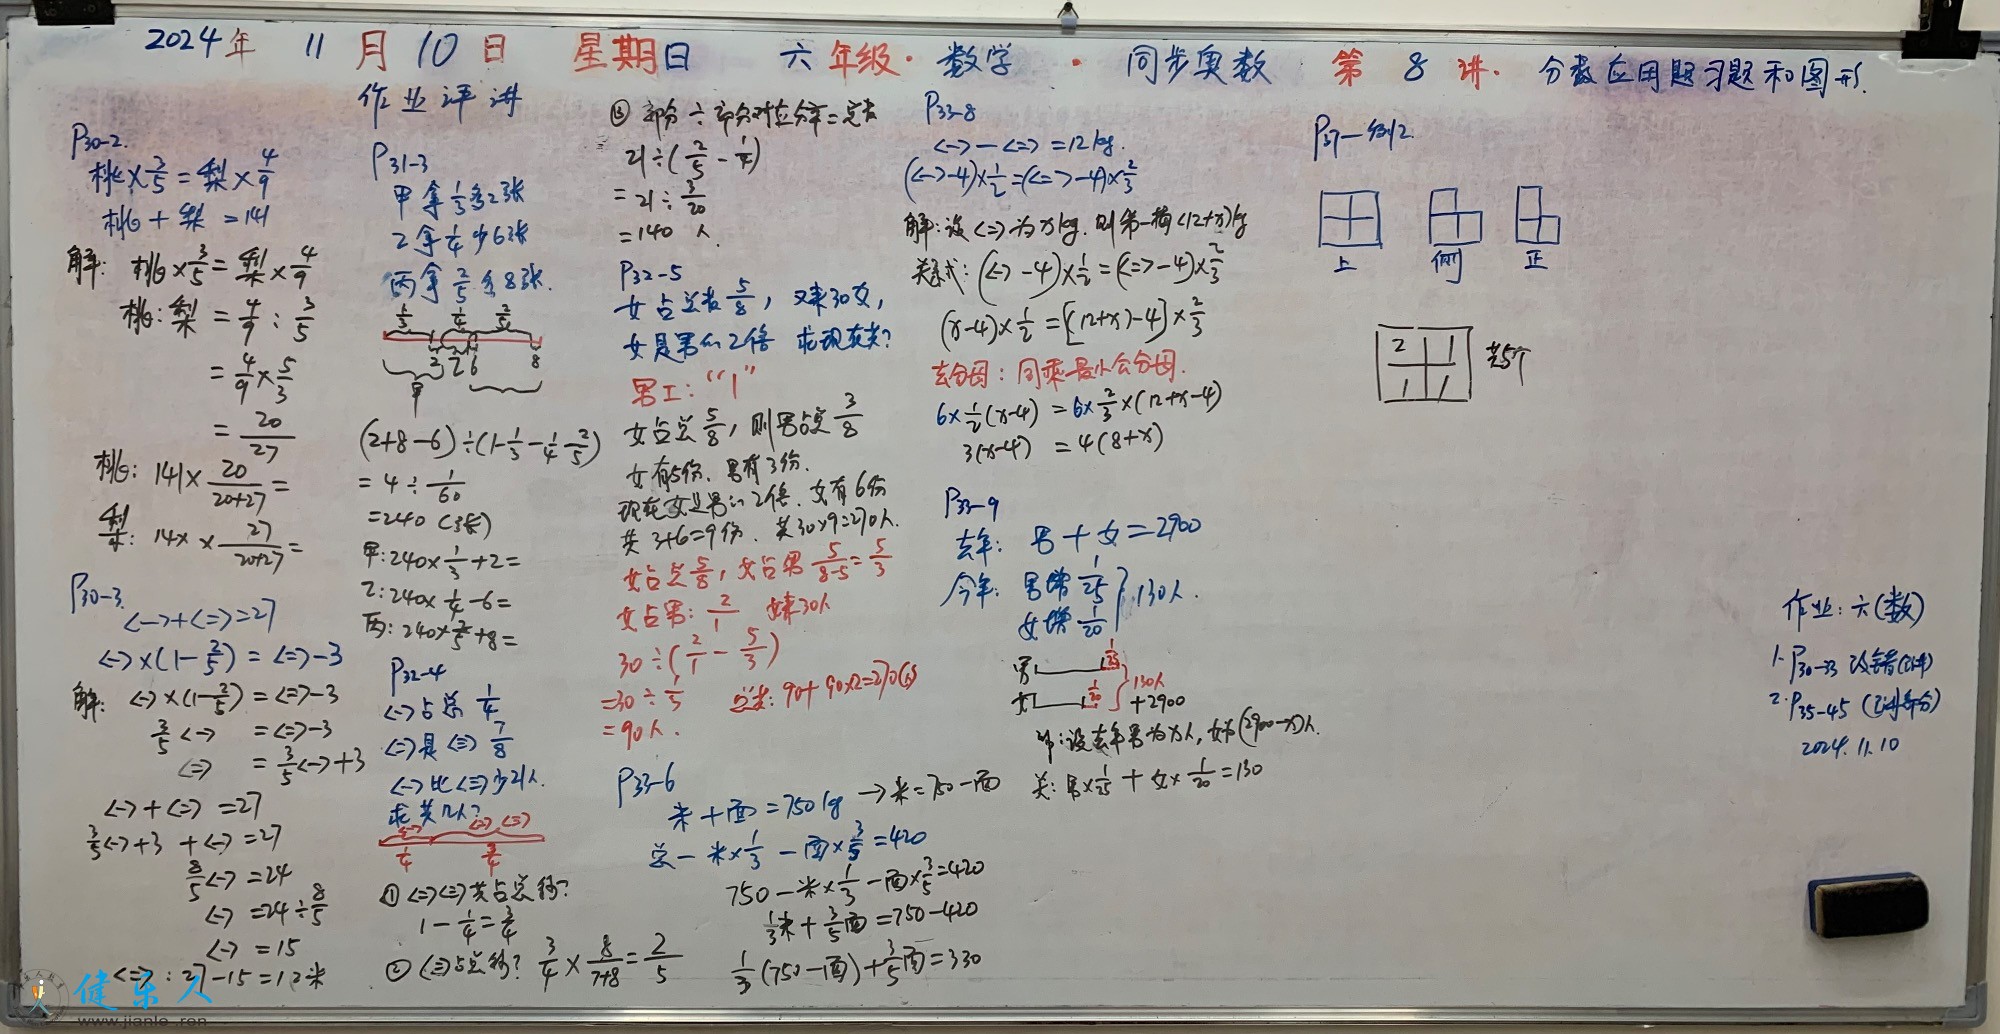 2024年 11月10日 星期日 六年级·数学·同步奥数 第8讲·分数应用题习题和图形.
作业评讲
P30-2.
桃×3/5=梨×4/9
桃+梨=141
解: 桃×3/5=梨×4/9
桃:梨=4/9:3/5
=4/9×5/3
=20/27
桃: 141×20/(20+27)=
梨: 141×27/(20+27)=
P30-3.
<一>+<二>=27
<一>×(1-2/5)=<二>-3
解: <一>×(1-2/5)=<二>-3
3/5<一>=<二>-3
<二>=3/5<一>+3
<一>+<二>=27
3/5<一>+3+<一>=27
8/5<一>=24
<一>=24÷8/5
<一>=15
<二>:27-15=12米
P31-3
甲拿1/3多2张
乙拿1/4少6张
丙拿2/5多8张.
1/3 1/4 2/5
3 2 6 8
甲
(2+8-6)÷(1-1/3-1/4-2/5)
=4÷1/60
=240(张)
甲:240×1/3+2=
乙:240×1/4-6=
丙:240×2/5+8=
P32-4
<一>占总1/4
<二>是<三>7/8
<一>比<三>少21人.
求共几人?
<一> <二> <三>
1/4 3/4
①<二><三>共占总几?
1-1/4=3/4
②<三>占总几? 3/4×8/(7+8)=2/5
③部分÷部分对应分率=总数
21÷(2/5-1/4)
=21÷3/20
=140人.
P32-5
女占总数5/8, 又来30女,
女是男的2倍 求现在共?
男工:“1”
女占总5/8, 则男占总3/8
女有5份、男有3份.
现在女是男的2倍、女有6份
共3+6=9份、共30×9=270人.
女占总5/8, 女占男5/(8-5)=5/3
女占男:2/1 女来30人
30÷(2/1-5/3)
=30÷1/3
=90人.
总共:90+90×2=270(人)
P33-6
米+面=750kg →米=750-面
总-米×1/3-面×3/5=420
750-米×1/3-面×3/5=420
1/3米+3/5面=750-420
1/3(750-面)+3/5面=330
P33-8
<一>-<二>=12kg.
(<一>-4)×1/2=(<二>-4)×2/3
解:设<二>为xkg.则第一桶(12+x)kg
关系式:(<一>-4)×1/2=(<二>-4)×2/3
(x-4)×1/2=[(12+x)-4]×2/3
去分母: 同乘最小公分母.
6×1/2(x-4)=6×2/3×(12+x-4)
3(x-4)=4(8+x)
P33-9
去年: 男+女=2900
今年: 男增1/25
女增1/20
130人.
男 1/25
女 1/20
130人
+2900
解:设去年男为x人, 女为(2900-x)人.
关:男×1/25+女×1/20=130
P37-例2
上 侧 正
2 1
1 1
共5个
作业:六(数)
1. P30-33 改错(已讲)
2. P35-45 (已讲部分)
2024.11.10
健乐人
www.jianle.ren